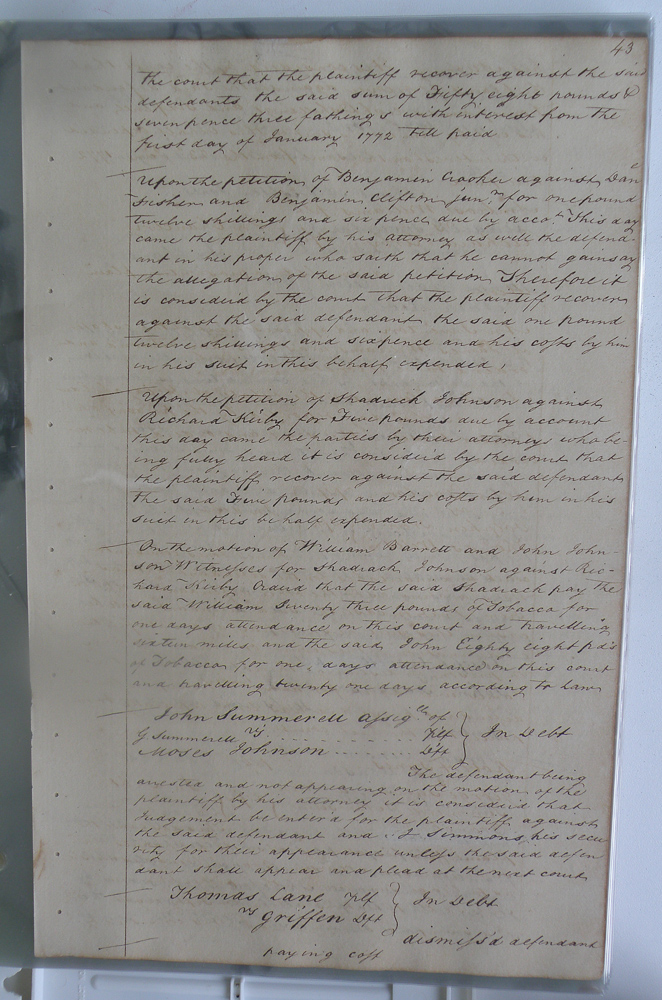 43
the court that the plaintiff recover against the said
defendants the said sum of Fifty eight pounds &
seven pence three fathings with interest from the
first day of January 1772 till paid
Upon the petition of Benjamin Crooker against Danl
Fisher and Benjamin Clifton junr. for one pound
twelve shillings and six pence due by accot. This day
came the plaintiff by his attorney as well the defend-
ant in his proper who saith that he cannot gainsay
the allegation of the said petition Therefore it
is considerd by the court that the plaintiff recover
against the said defendant the said one pound
twelve shillings and sixpence and his costs by him
in his suit in this behalf expended,
Upon the petition of Shadrick Johnson against
Richard Kirby for Five pounds due by account
this day came the parties by their attorneys who be-
ing fully heard it is considerd by the court that
the plaintiff recover against the said defendant
the said Five pounds and his costs by him in his
suit in this behalf expended.
On the motion of William Barrett and John John-
son Witnesses for Shadrach Johnson against Ric-
hard Kirby Orderd that the said Shadrach pay the
said William Seventy three pounds of Tobacco for
one days attendance on this court and travelling
sixteen miles and the said John Eighty eight pds
of Tobacco for one days attendance on this court
and travelling twenty one days according to Law
John Summerell assige. of
G Summerell vs Plf } In Debt
Moses Johnson Dft
The defendant being
arested and not appearing on the motion of the
plaintiff by his attorney it is considerd that
Judgement be enter'd for the plaintiff against
the said defendant and J Simmons his secu
rity for their appearance unless the said defen
dant shall appear and plead at the next court
Thomas Lane Plf } In Debt
vs Griffen Dft
dismiss'd defendant
paying cost